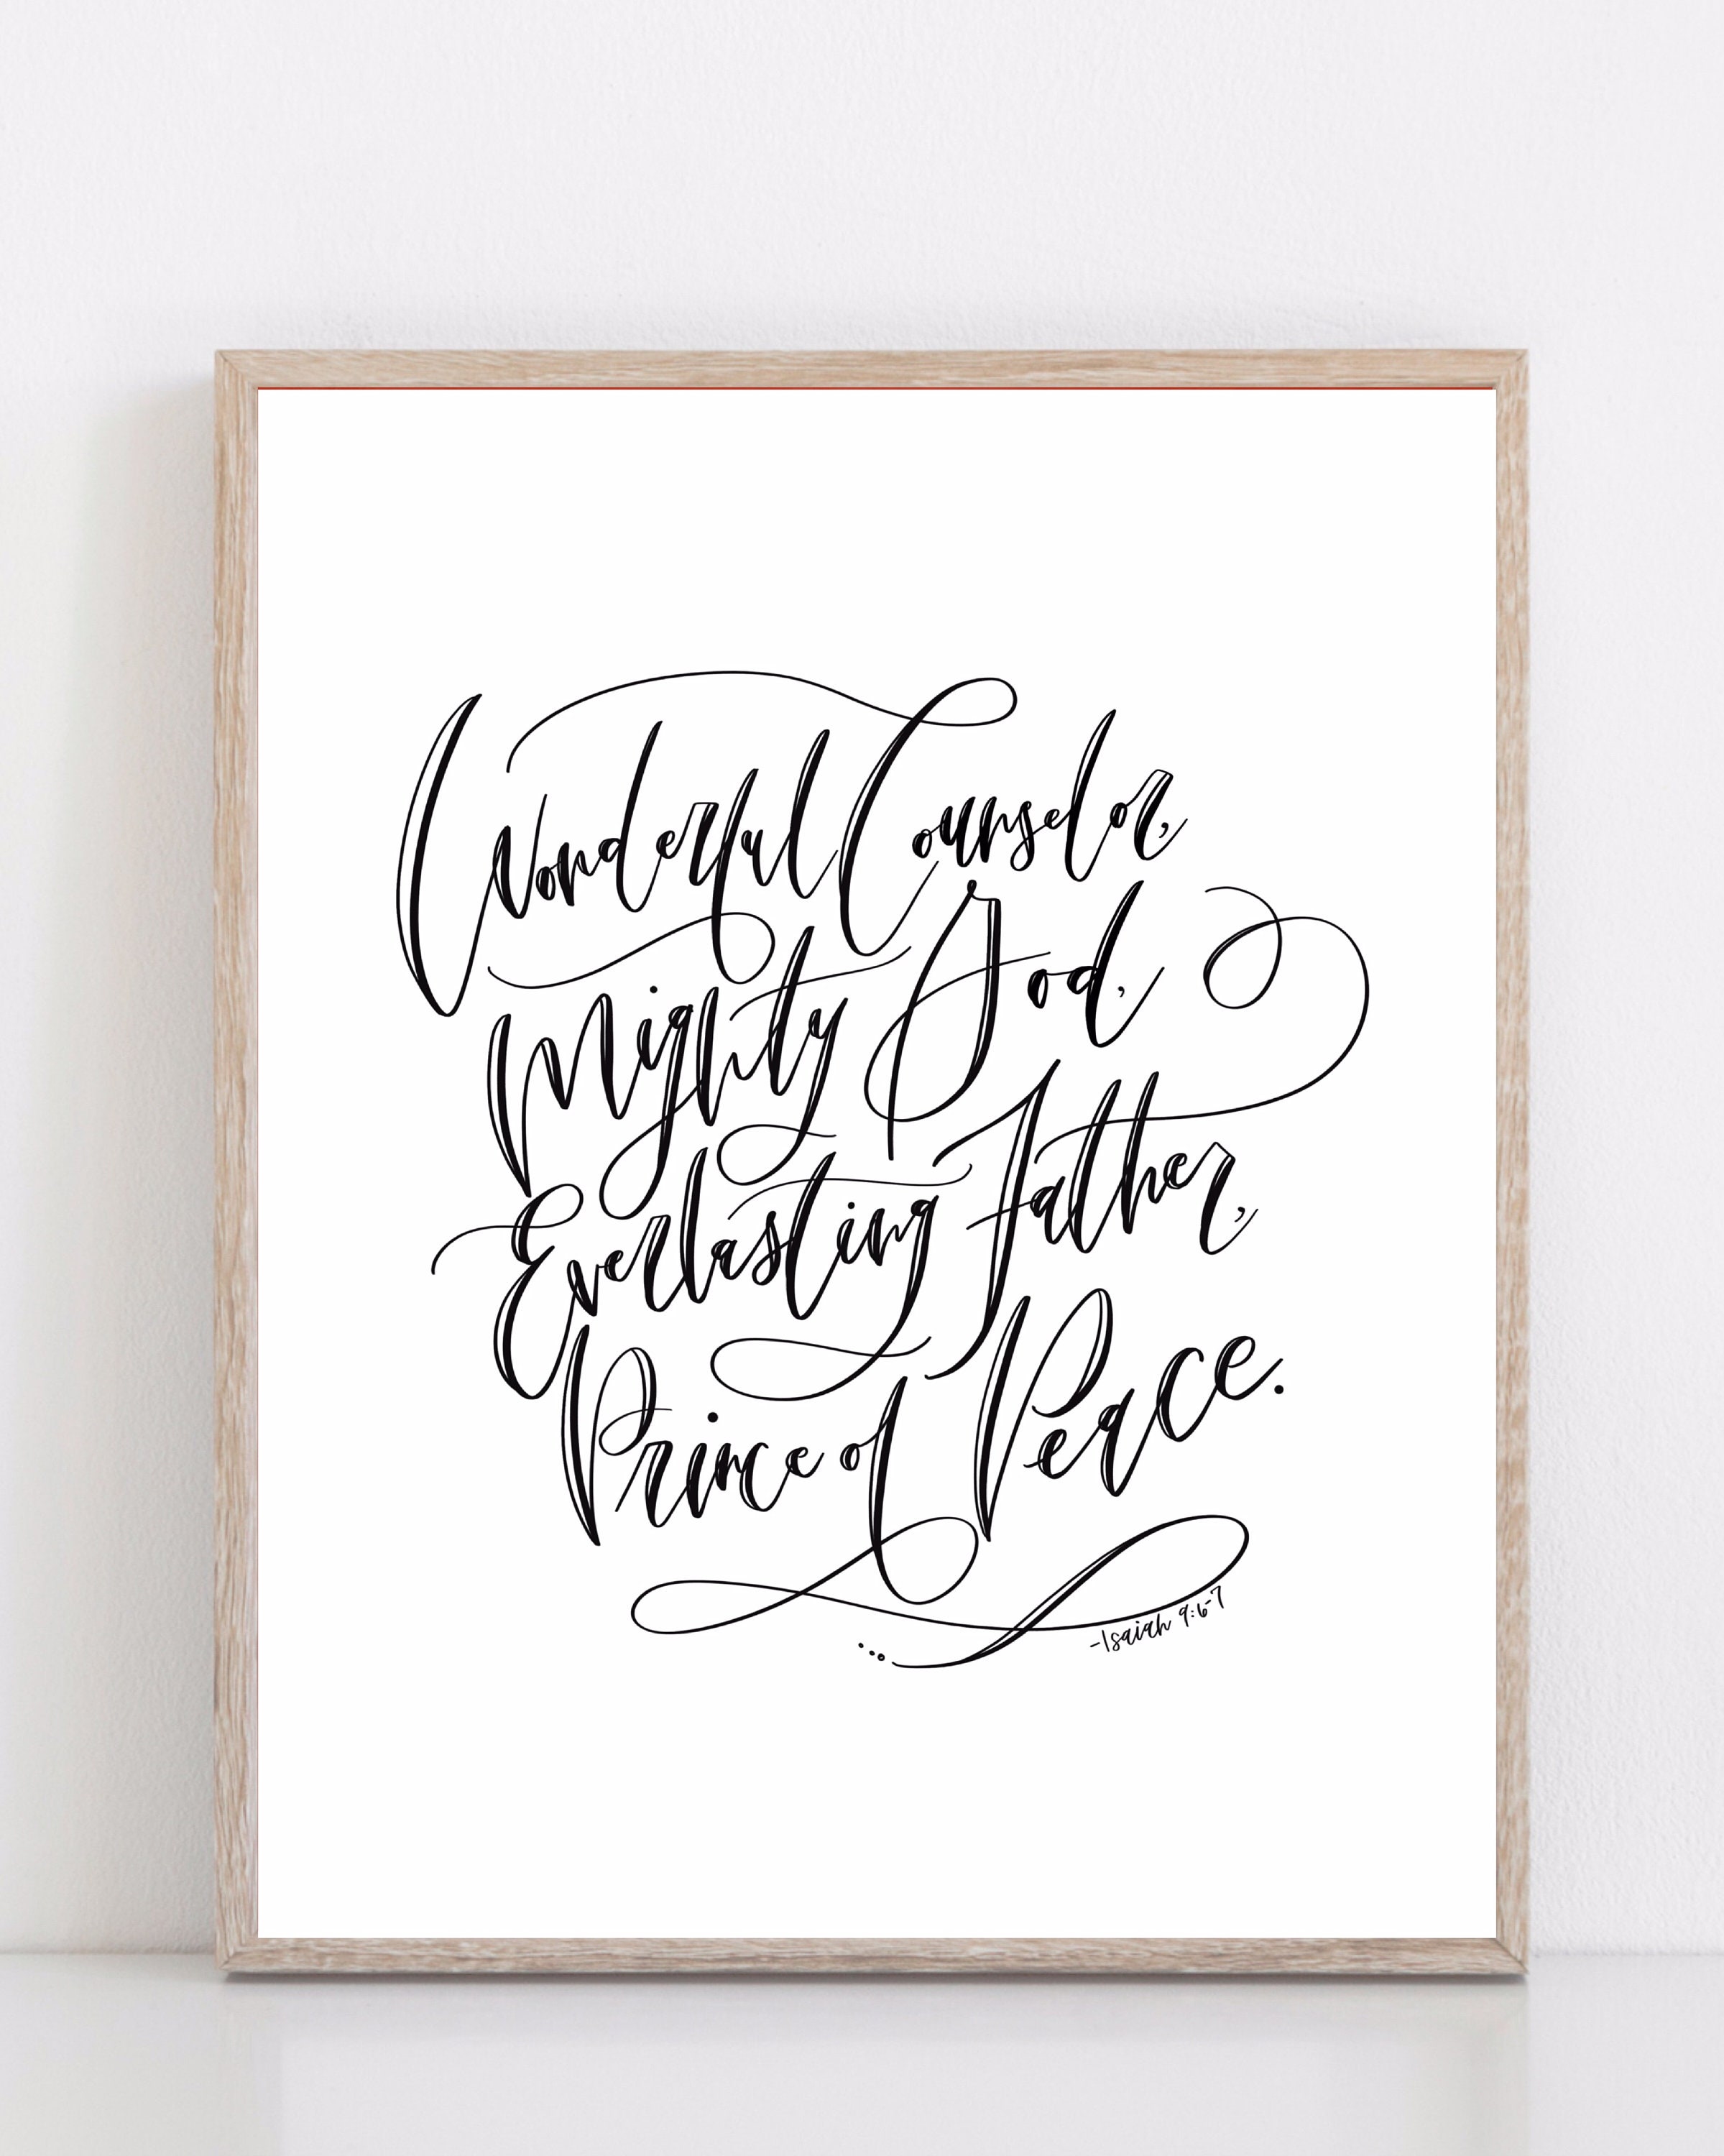 Wonderful Counselor,
Mighty God,
Everlasting Father,
Prince of Peace.
-Isaiah 9:6-7